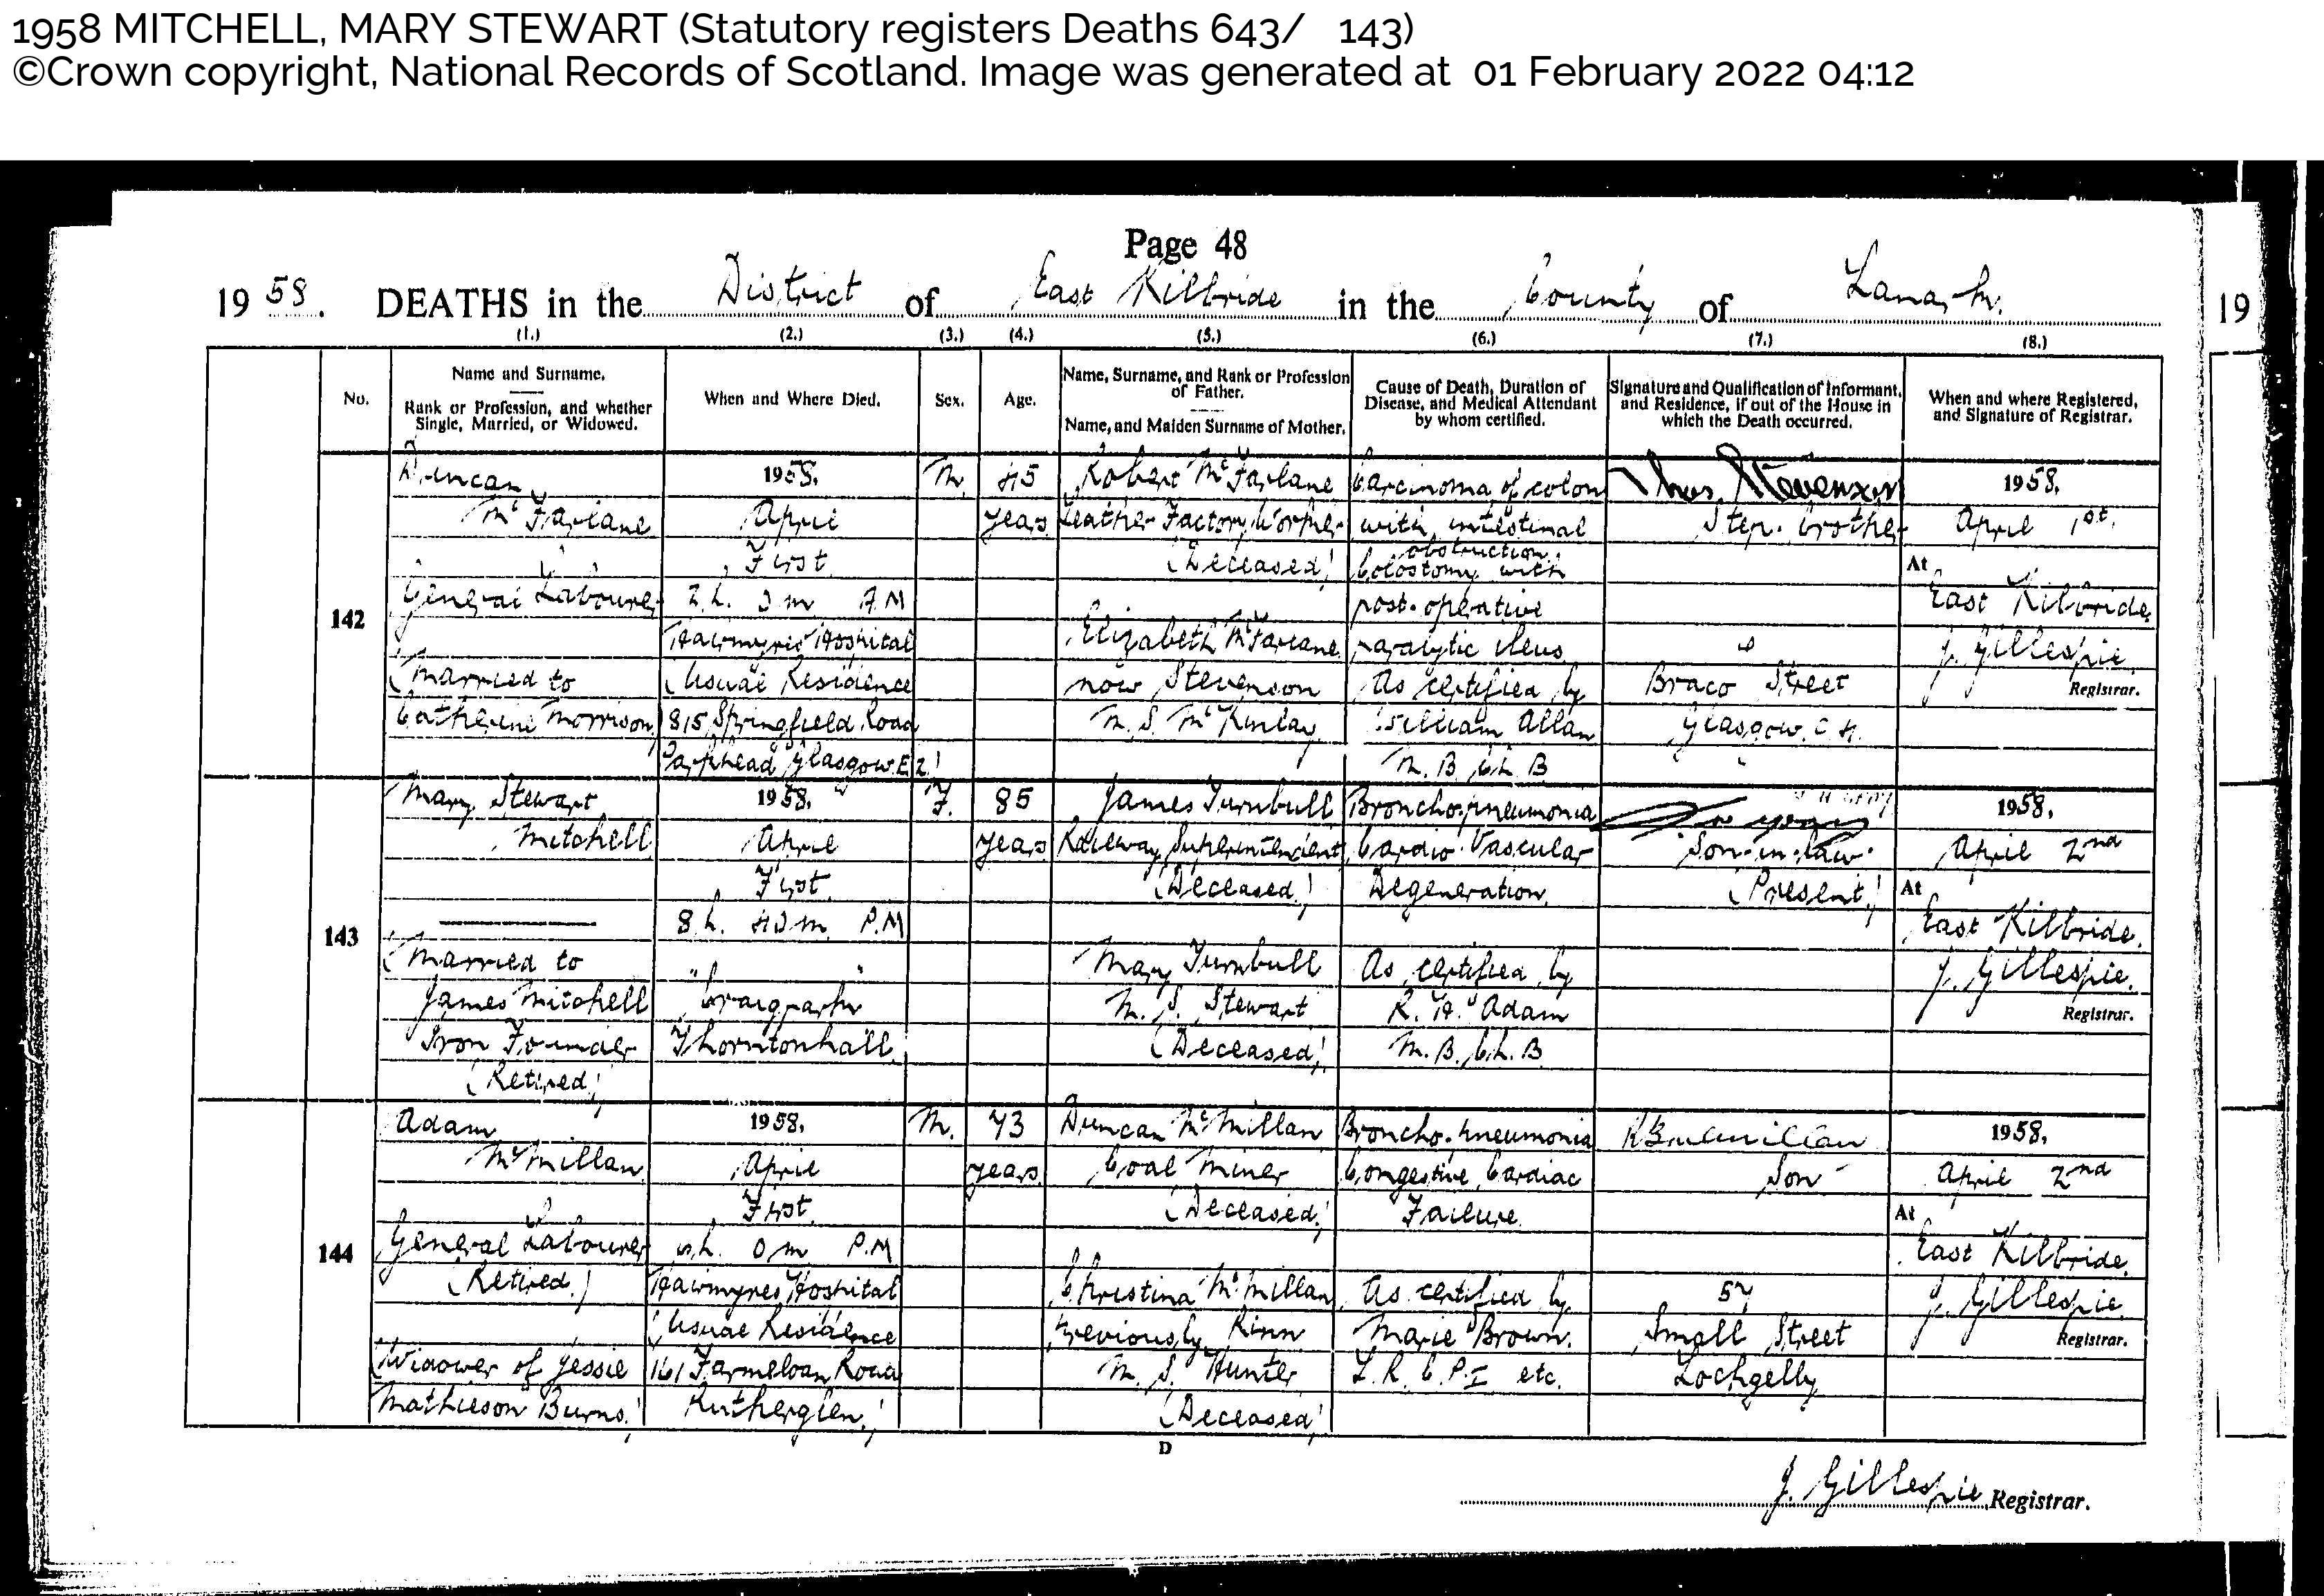 1958 MITCHELL, MARY STEWART (Statutory registers Deaths 643/ 143)
©Crown copyright, National Records of Scotland. Image was generated at 01 February 2022 04:12
Page 48
1958. DEATHS in the District of East Kilbride in the County of Lanark.
19
(1.) (2.) (3.) (4.) (5.) (6.) (7.) (8.)
No.
Name and Surname.
Rank or Profession, and whether
Single, Married, or Widowed.
When and Where Died.
Sex.
Age.
Name, Surname, and Rank or Profession
of Father.
Name, and Maiden Surname of Mother.
Cause of Death, Duration of
Disease, and Medical Attendant
by whom certified.
Signature and Qualification of Informant,
and Residence, if out of the House in
which the Death occurred.
When and where Registered,
and Signature of Registrar.
142
Duncan
McFarlane
General Labourer
(Married to
Catherine Morrison)
1958.
April
First
2h. 0m AM
Hairmyres Hospital
(Usual Residence
815 Springfield Road
Parkhead Glasgow. E2.)
M.
45
years
Robert McFarlane
Leather Factory Worker
(Deceased)
Elizabeth McFarlane
now Stevenson
M.S. McKinlay
Carcinoma of colon
with intestinal
obstruction.
Colostomy with
post-operative
paralytic ileus
As certified by
William Allan
M.B. Ch.B
Thos. Stevenson
Step-brother
Braco Street
Glasgow.
1958.
April 1st.
At
East Kilbride
J. Gillespie.
Registrar.
143
Mary Stewart
Mitchell
(Married to
James Mitchell
Iron Founder
(Retired)
1958.
April
First
8h. 40m. P.M
"Craigpark"
Thorntonhall
F.
85
years
James Turnbull
Railway Superintendent
(Deceased)
Mary Turnbull
M.S. Stewart
(Deceased)
Broncho-pneumonia
Cardio-Vascular
Degeneration.
As certified by
R. H. Adam
M.B. Ch.B
Son-in-law.
(Present)
1958.
April 2nd
At
East Kilbride.
J. Gillespie.
Registrar.
144
Adam
McMillan
General Labourer
(Retired.)
(Widower of Jessie
Mathieson Burns.)
1958.
April
First
0m P.M
Hairmyres Hospital
(Usual Residence
161 Farmeloan Road
Rutherglen.)
M.
73
years
Duncan McMillan
Coal Miner
(Deceased.)
Christina McMillan
previously Kinn
M.S. Hunter
(Deceased)
Broncho-pneumonia
Congestive Cardiac
Failure
As certified by
Marie Brown.
L.R.C.P.I etc.
Son
57
Small Street
Lochgelly
1958.
April 2nd
At
East Kilbride.
J. Gillespie
Registrar.
D
J. Gillespie Registrar.